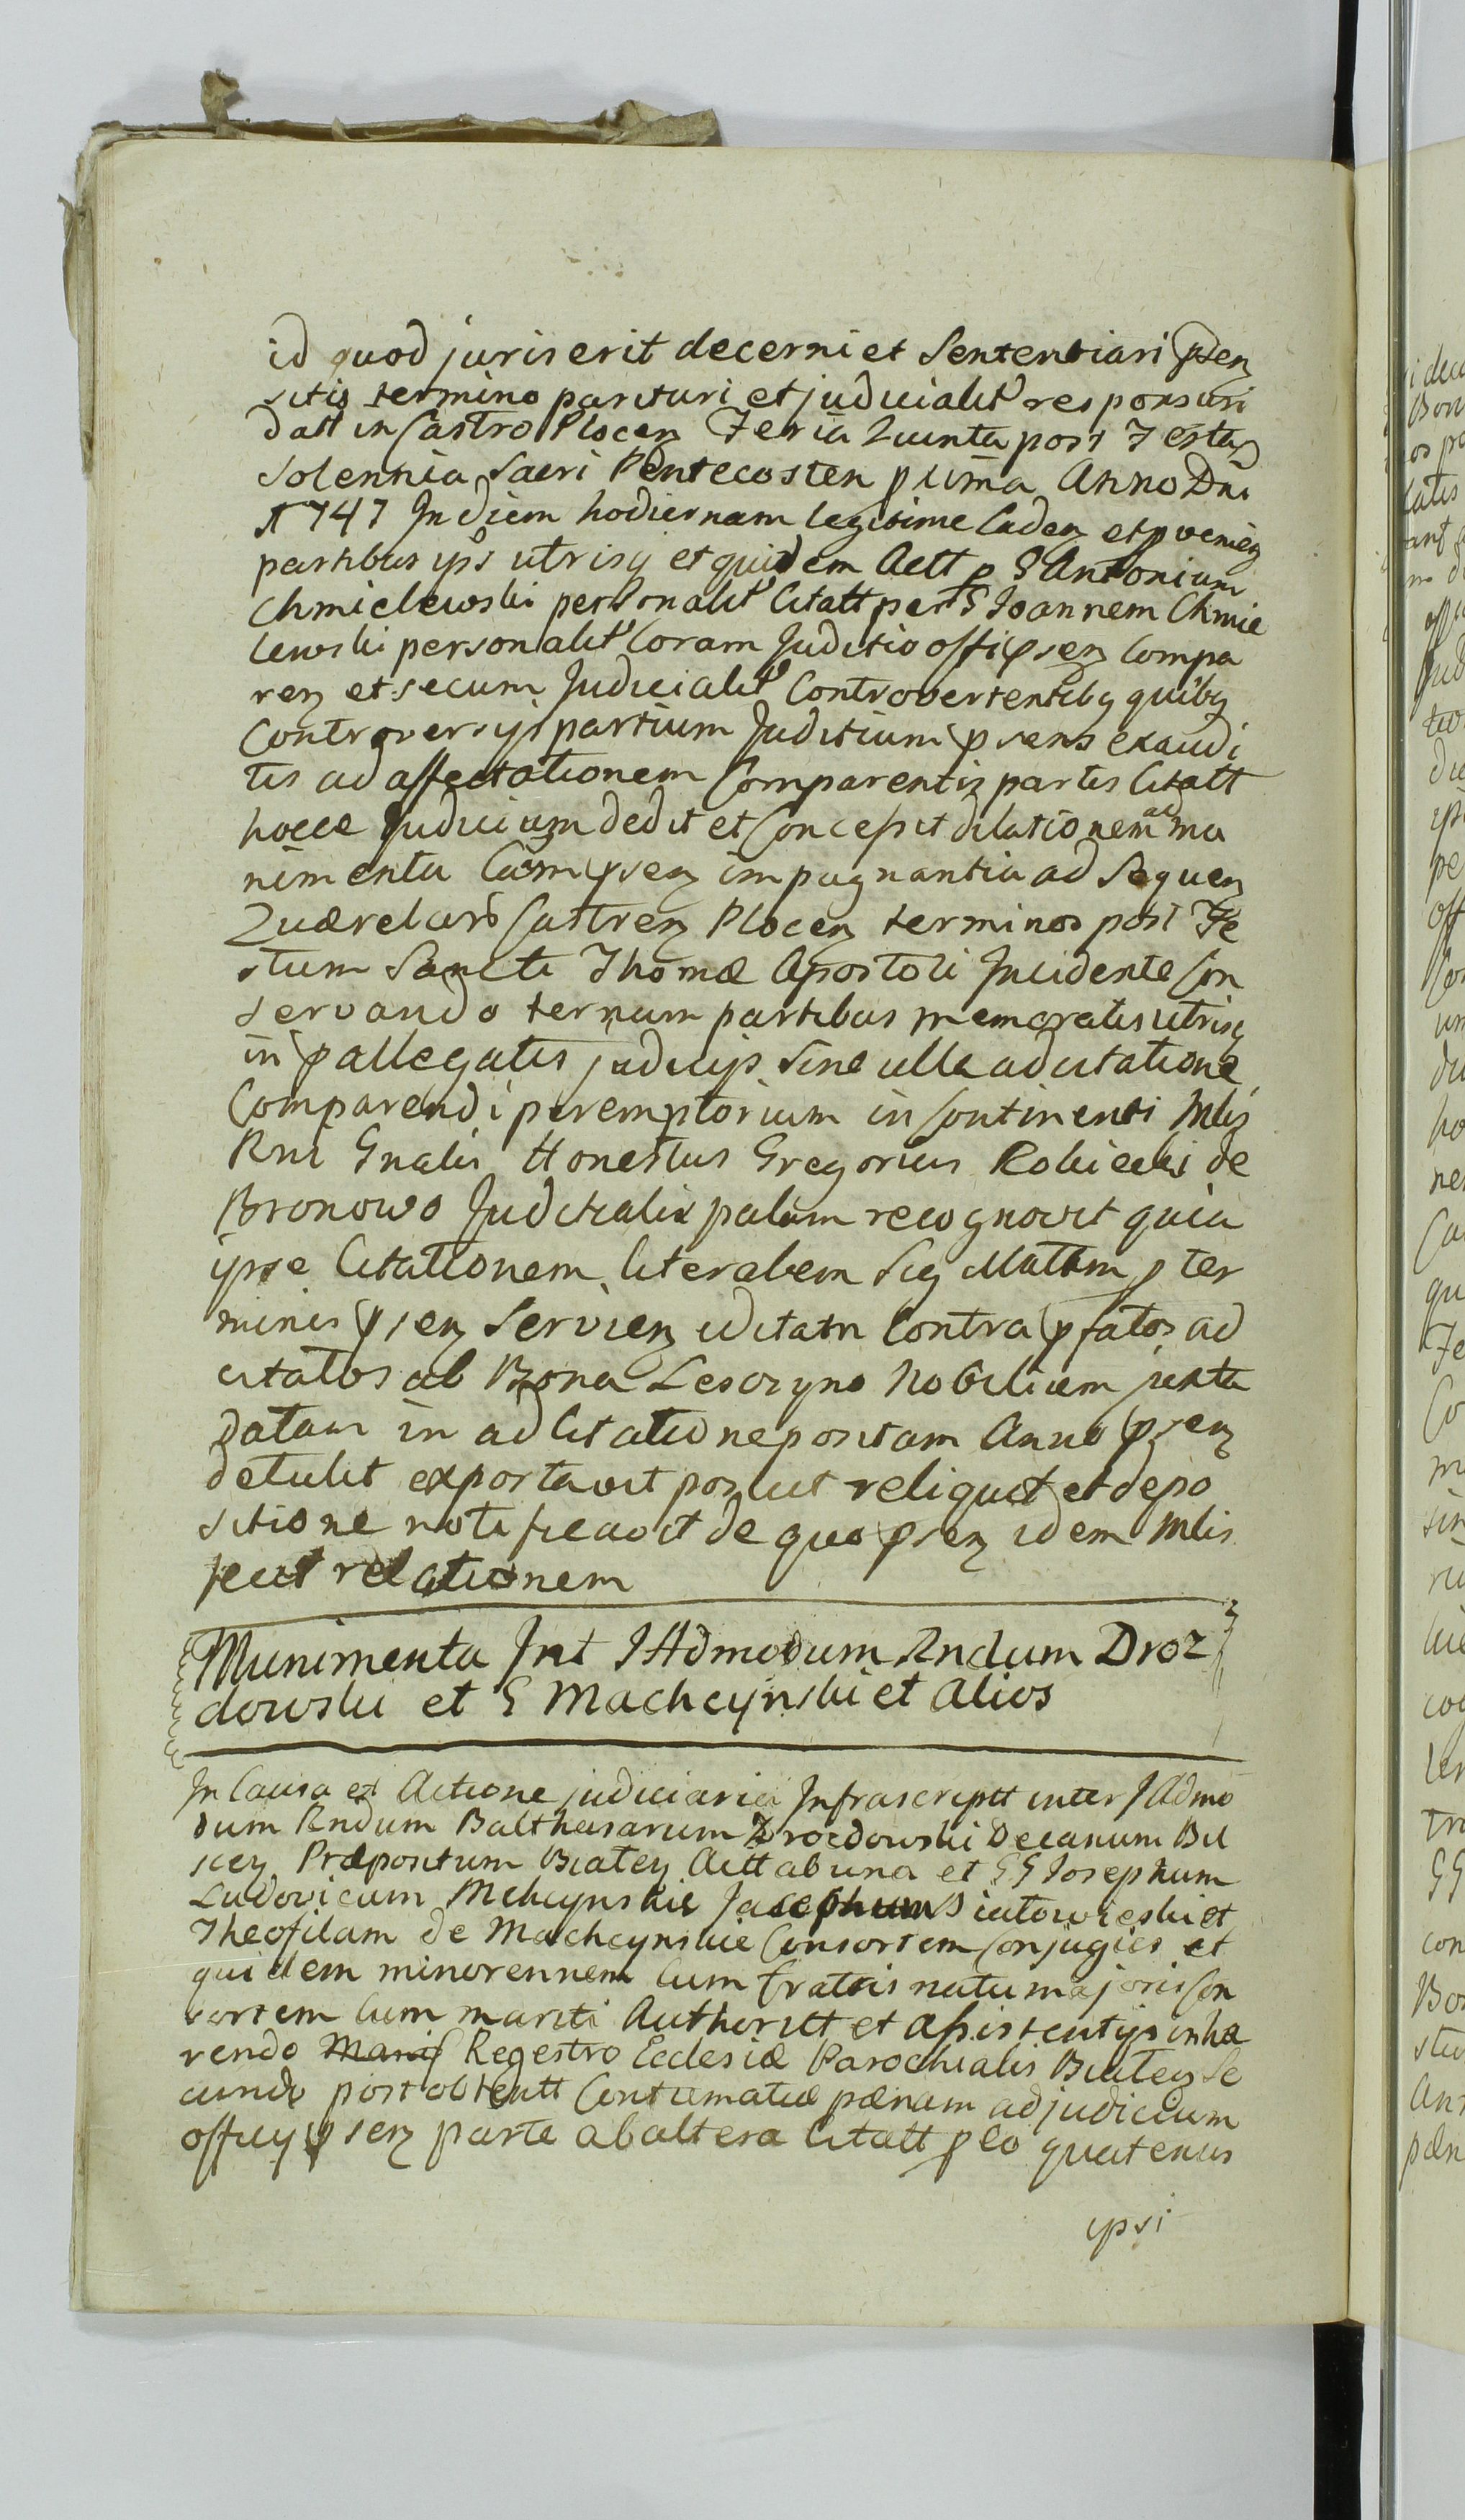 id quod juris erit decerni et Sententiari psen
sitis termino parituri et judicialit responsuri
datt in Castro Plocen Feria Quinta post Festa
Solennia Sacri Pentecosten prima Anno Dni
1747 In diem hodiernam legitime Caden et proenien
partibus ips utrisq et quidem Actt p G Antonium
Chmielewski personalit Citatt per G Joannem Chmie
lewski personalit Coram Juditio offi psen Compa
ren et secum Judicialit Controvertentibq quibq
Controversijs partium Juditium psens exaudi
tis ad affectationem Comparentis partis Citatt
hocce Judicium dedit et Concessit dilationem ad mu
nimenta Cam psen impugnantia ad Sequen
Quærelars Castren Plocen terminos post Fe
stum Sancti Thomæ Apostoli Incidente Con
servando ternum partibus memoratis utrisq
in pallegatis judicijs sine ulla adcitatione
Comparendi peremptorium in Continenti Mlis
Rni Gnalis Honestus Gregorius Robiecki de
Bronowo Juditialit palam recognovit quia
ipse Citationem literalem Sig Mattm p ter
minis psen Servien editatn Contra pfatos ad
citatos ab Bona Lesczyno Nobilium juxta
datam in ad Citatione positam Anno psen
detulit exportavit posuit reliquit et depo
sitione notificavit de quo psen idem Mlis
fecit relationem
Munimenta Int J Admodum Rndum Droz
dowski et G Machcynski et Alios
In Causa et Actione judiciaria Infrascriptt inter J Admo
dum Rndum Balthasarum Drozdowski Decanum Bil
scen Præpositum Bialen Actt ab una et GG Josephum
Ludovicum Mchcynskie Josephum Siutowieski et
Theofilam de Machcynskie Consortem Conjugies et
quidem minorennem Cum fratris natu majoris Con
sortem Cum mariti Authoritt et assistentijs inhæ
rendo Manif Regestro Ecclesiæ Parochialis Bialen Se
cundo post obtentt Contumatiæ pænam ad judicium
officy psen parte ab altera Citatt p eo quatenus
ipsi